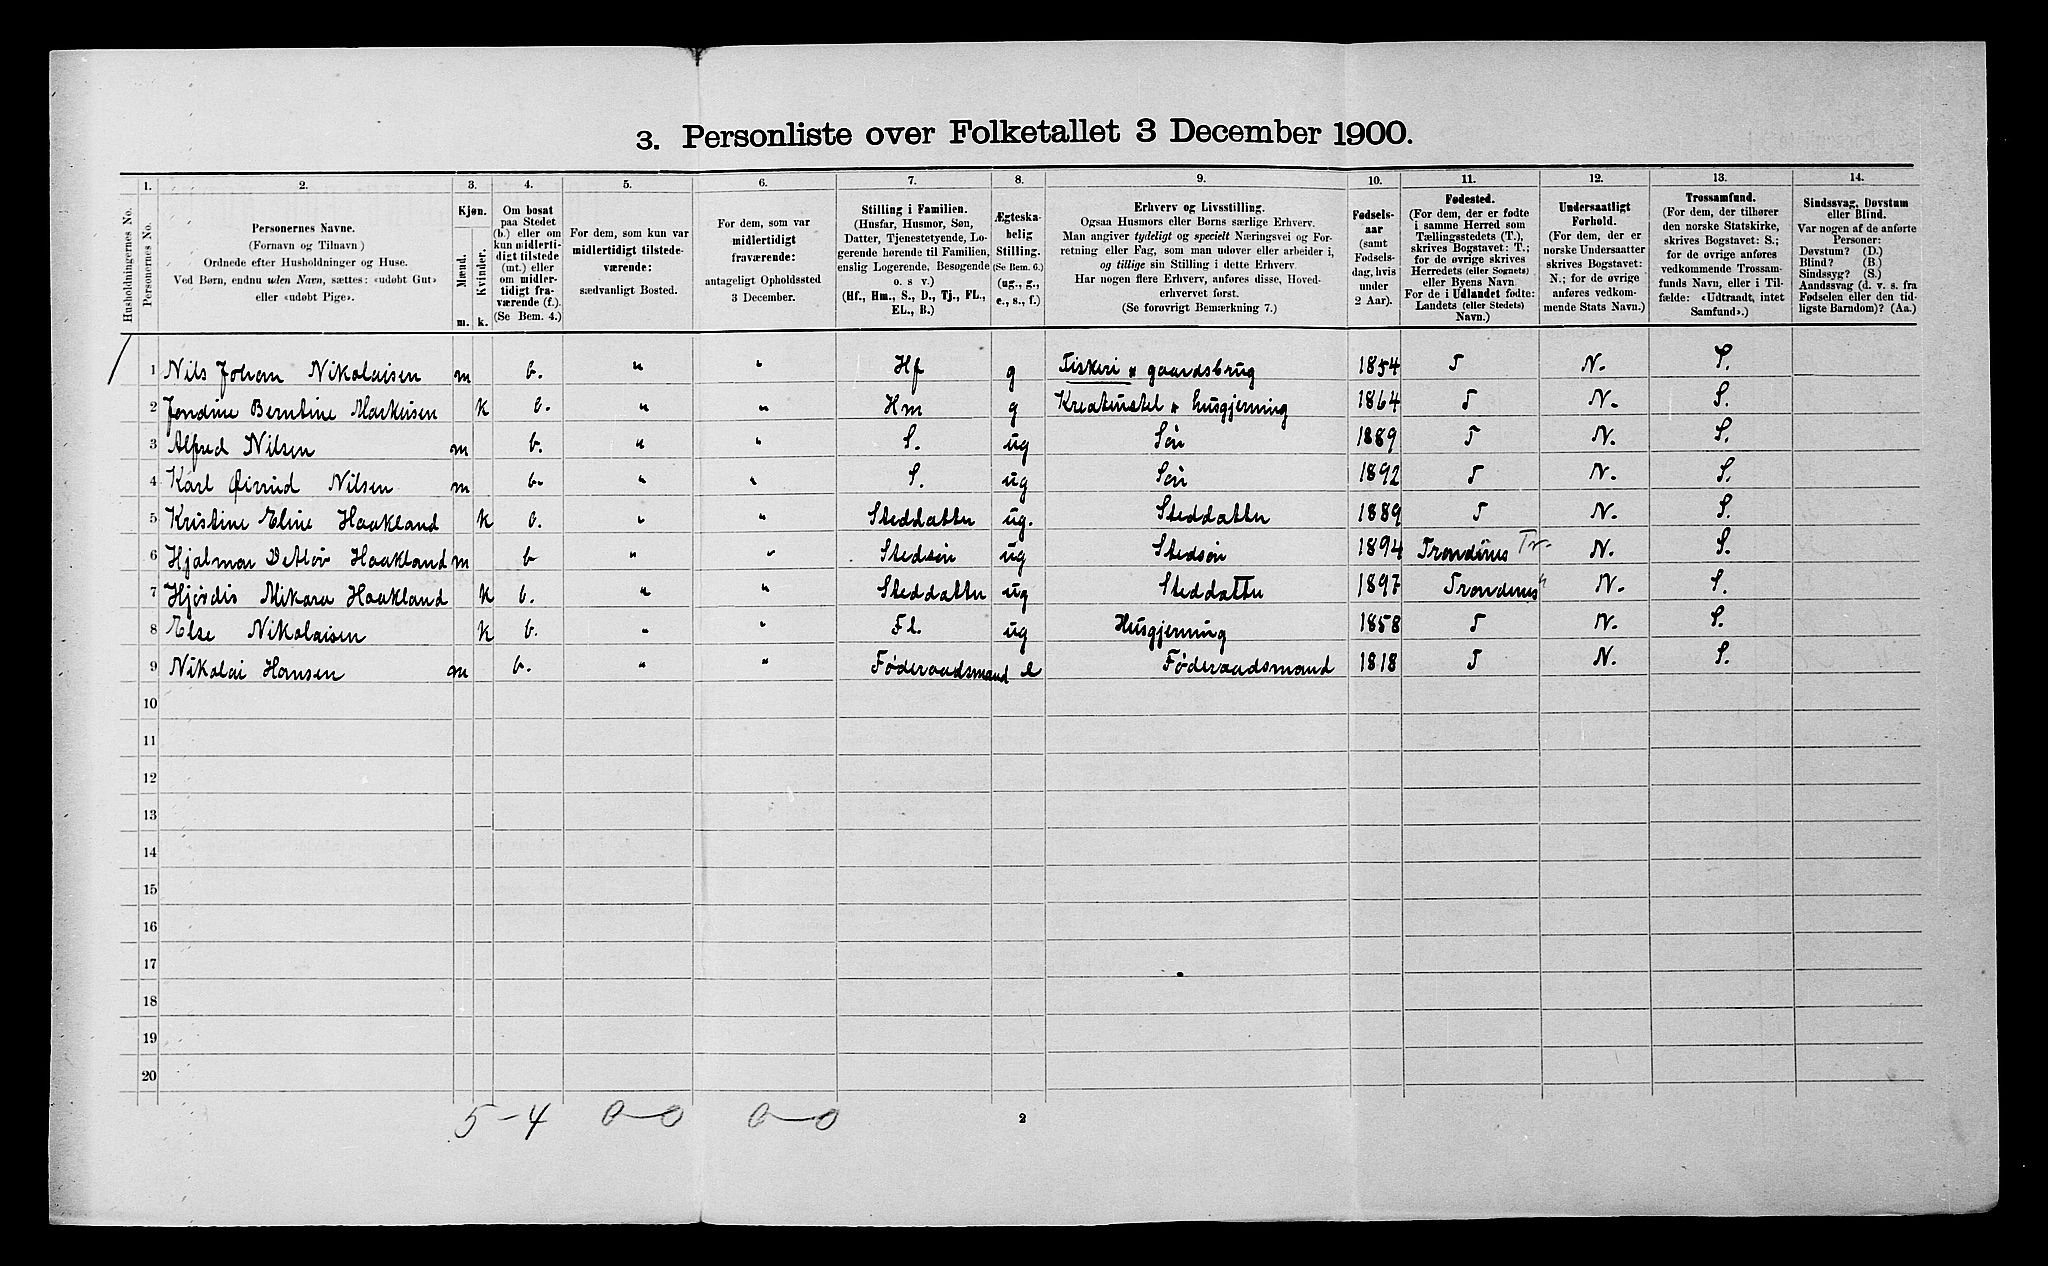 3. Personliste over Folketallet 3 December 1900.
1. 2. 3. 4. 5. 6. 7. 8. 9. 10. 11. 12. 13. 14.
Husholdningernes No.
Personernes No.
Personernes Navne.
(Fornavn og Tilnavn)
Ordnede efter Husholdninger og Huse.
Ved Børn, endnu uden Navn, sættes: «udøbt Gut»
eller «udøbt Pige».
Kjøn.
Mænd. Kvinder.
m. k.
Om bosat
paa Stedet
(b.) eller om
kun midlerti-
digt tilstede
(mt.) eller
om midler-
tidigt fra-
værende (f.).
(Se Bem. 4.)
For dem, som kun var
midlertidigt tilstede-
værende:
sædvanligt Bosted.
For dem, som var
midlertidigt
fraværende:
antageligt Opholdssted
3 December.
Stilling i Familien.
(Husfar, Husmor, Søn,
Datter, Tjenestetyende, Lo-
gerende hørende til Familien,
enslig Logerende, Besøgende
o. s v.)
(Hf., Hm., S., D., Tj., FL.,
EL., B.)
Ægteska-
belig
Stilling.
(Se Bem. 6.)
(ug., g.,
e., s., f.)
Erhverv og Livsstilling.
Ogsaa Husmors eller Børns særlige Erhverv.
Man angiver tydeligt og specielt Næringsvei og For-
retning eller Fag, som man udøver eller arbeider i,
og tillige sin Stilling i dette Erhverv.
Har nogen flere Erhverv, anføres disse, Hoved-
erhvervet først.
(Se forøvrigt Bemærkning 7.)
Fødsels-
aar
(samt
Fødsels-
dag, hvis
under
2 Aar).
Fødested.
(For dem, der er fødte
i samme Herred som
Tællingsstedets (T.),
skrives Bogstavet: T.;
for de øvrige skrives
Herredets (eller Sognets)
eller Byens Navn
For de i Udlandet fødte:
Landets (eller Stedets)
Navn.)
Undersaatligt
Forhold.
(For dem, der er
norske Undersaatter
skrives Bogstavet:
N.; for de øvrige
anføres vedkom-
mende Stats Navn.)
Trossamfund.
(For dem, der tilhører
den norske Statskirke,
skrives Bogstavet: S.;
for de øvrige anføres
vedkommende Trossam-
funds Navn, eller i Til-
fælde: «Udtraadt, intet
Samfund».)
Sindssvag, Døvstum
eller Blind.
Var nogen af de anførte
Personer:
Døvstum? (D.)
Blind? (B.)
Sindssyg? (S.)
Aandssvag (d. v. s. fra
Fødselen eller den tid-
ligste Barndom)? (Aa.)
1 Nils Johan Nikolaisen m b. " " Hf g Fiskeri * gaardsbrug 1854 T N. S.
2 Jendine Berntine Markusen k b. " " Hm g Kreaturstel * husgjerning 1864 T N. S.
3 Alfred Nilsen m b. " " S. ug Søn 1889 T N. S.
4 Karl Øivind Nilsen m b. " " S. ug Søn 1892 T N. S.
5 Kristine Eline Haakland k b. " " Steddatter ug. Steddatter 1889 T N. S.
6 Hjalmar Detlöv Haakland m b " " Stedsøn ug Stedsøn 1894 Trondenes Tr. N. S.
7 Hjørdis Mikara Haakland k b. " " Steddatter ug Steddatter 1897 Trondenes " N. S.
8 Else Nikolaisen k b. " " Fl. ug Husgjerning 1858 T N. S.
9 Nikolai Hansen m b. " " Føderaadsmand e Føderaadsmand 1818 T N. S.
10
11
12
13
14
15
16
17
18
19
20
5-4 0-0 0-0 2